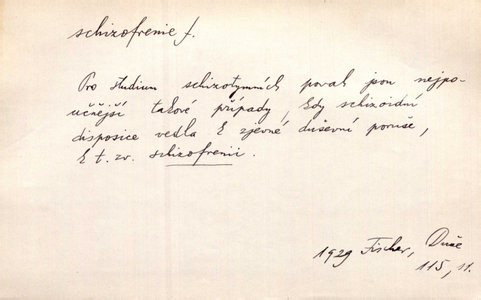 schizofrenie f.
Pro studium schizotymních povah jsou nejpo-
učnější takové případy, kdy schizoidní
disposice vedla k zjevné duševní poruše,
k t. zv. schizofrenii.
1929 Fischer, Duše
115, n.